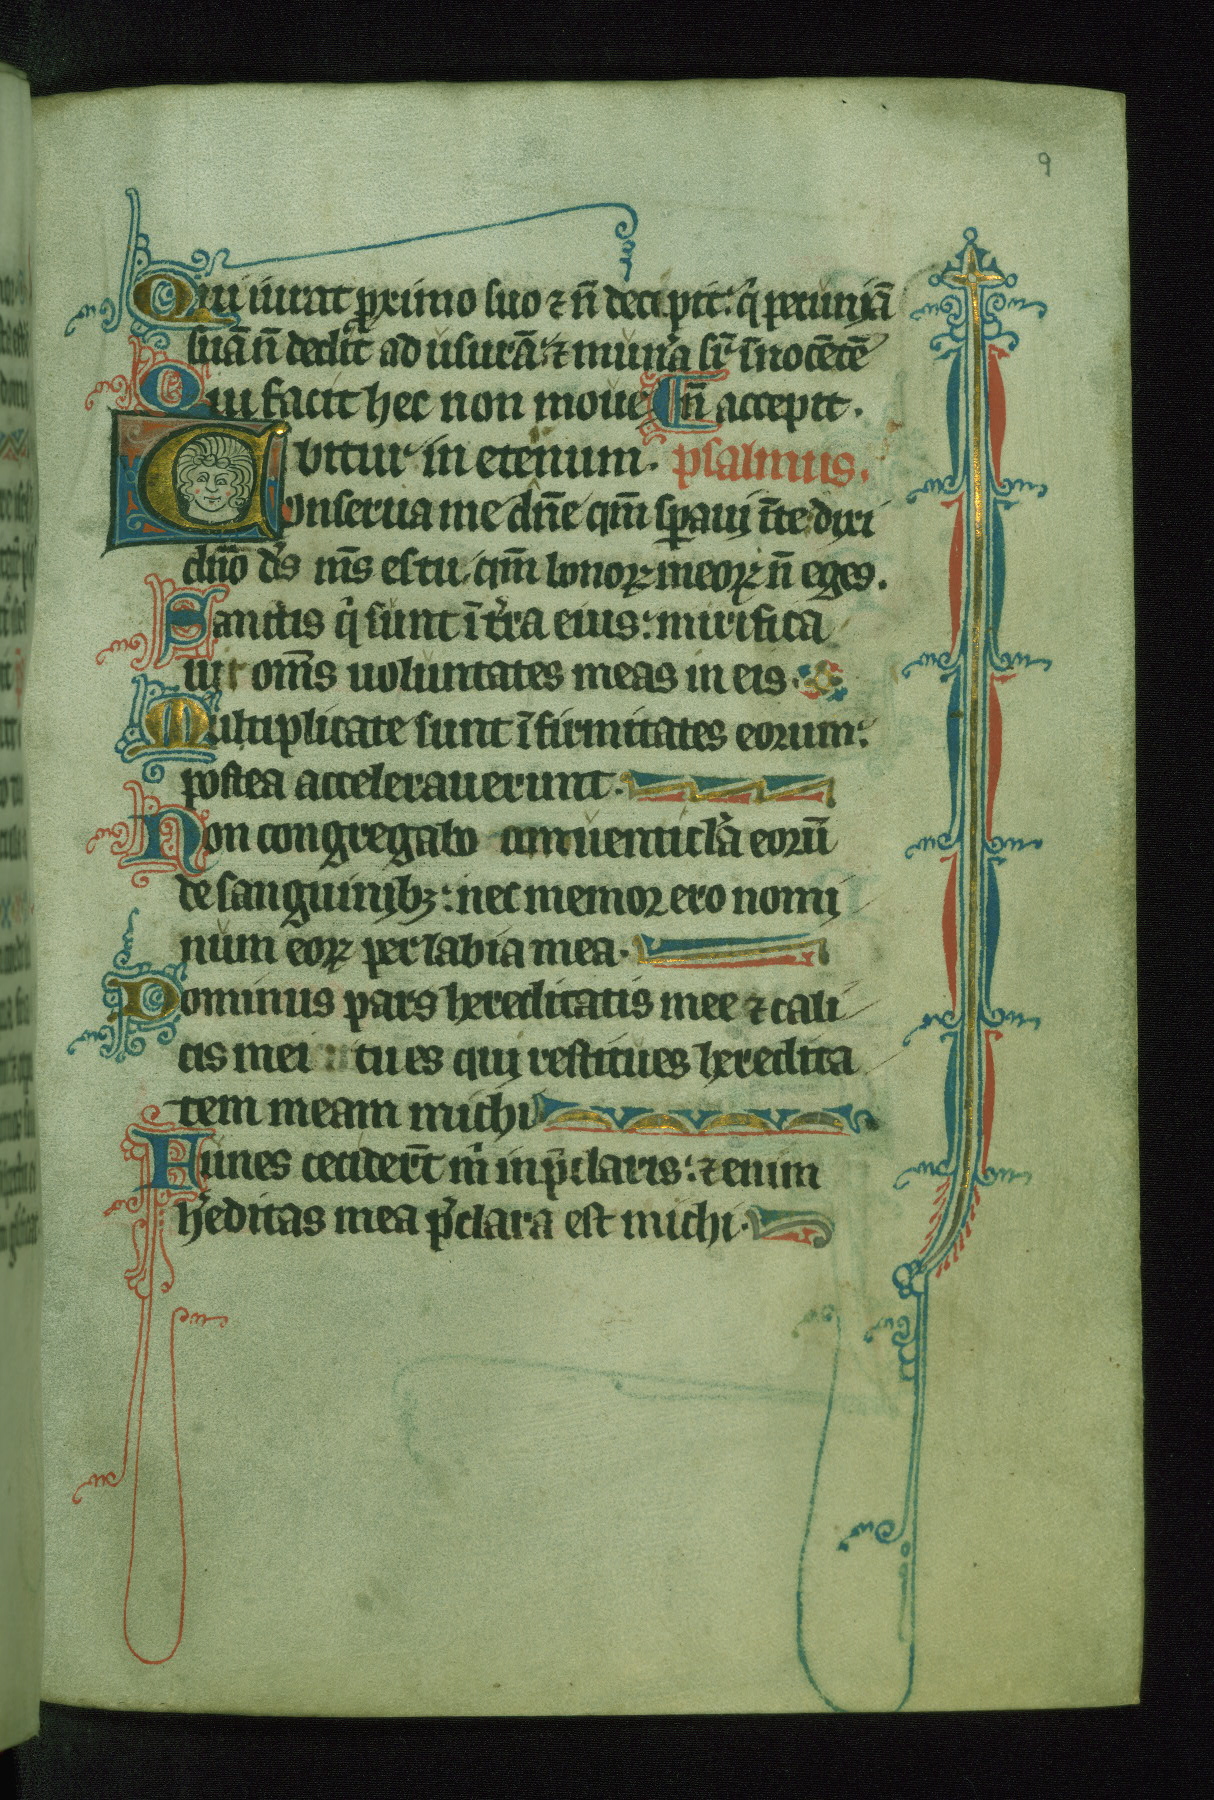 9
Qui iurat ꝓximo suo ⁊ n̄ decipit: qͥ pecuniā
suā n̄ dedit ad usurā: ⁊ munͣa suꝑ īnocētē
Qui facit hec non moue n̄ accepit.
bitur in etenum. psalmus.
Conserua me dn̄e qm̄ sꝑaui ī te dixi
dn̄o ds̄ ms̄ es tu. qm̄ bonoꝝ meoꝝ n̄ eges.
Sanctis qͥ sunt ī tr̄ra eius: mirifica
uit om̄s uoluntates meas in eis.
Multiplicate sunt īfirmitates eorum:
postea accelerauerunt.
Non congregabo conuenticl̄a eorū
de sanguinibꝫ: nec memor ero nomi
num eoꝝ per labia mea.
Dominus pars hereditatis mee ⁊ cali
cis mei tu es qui restitues heredita
tem meam michi
Funes cecider̄t mͥ in p̄claris: ⁊ enim
h̄editas mea p̄clara est michi.